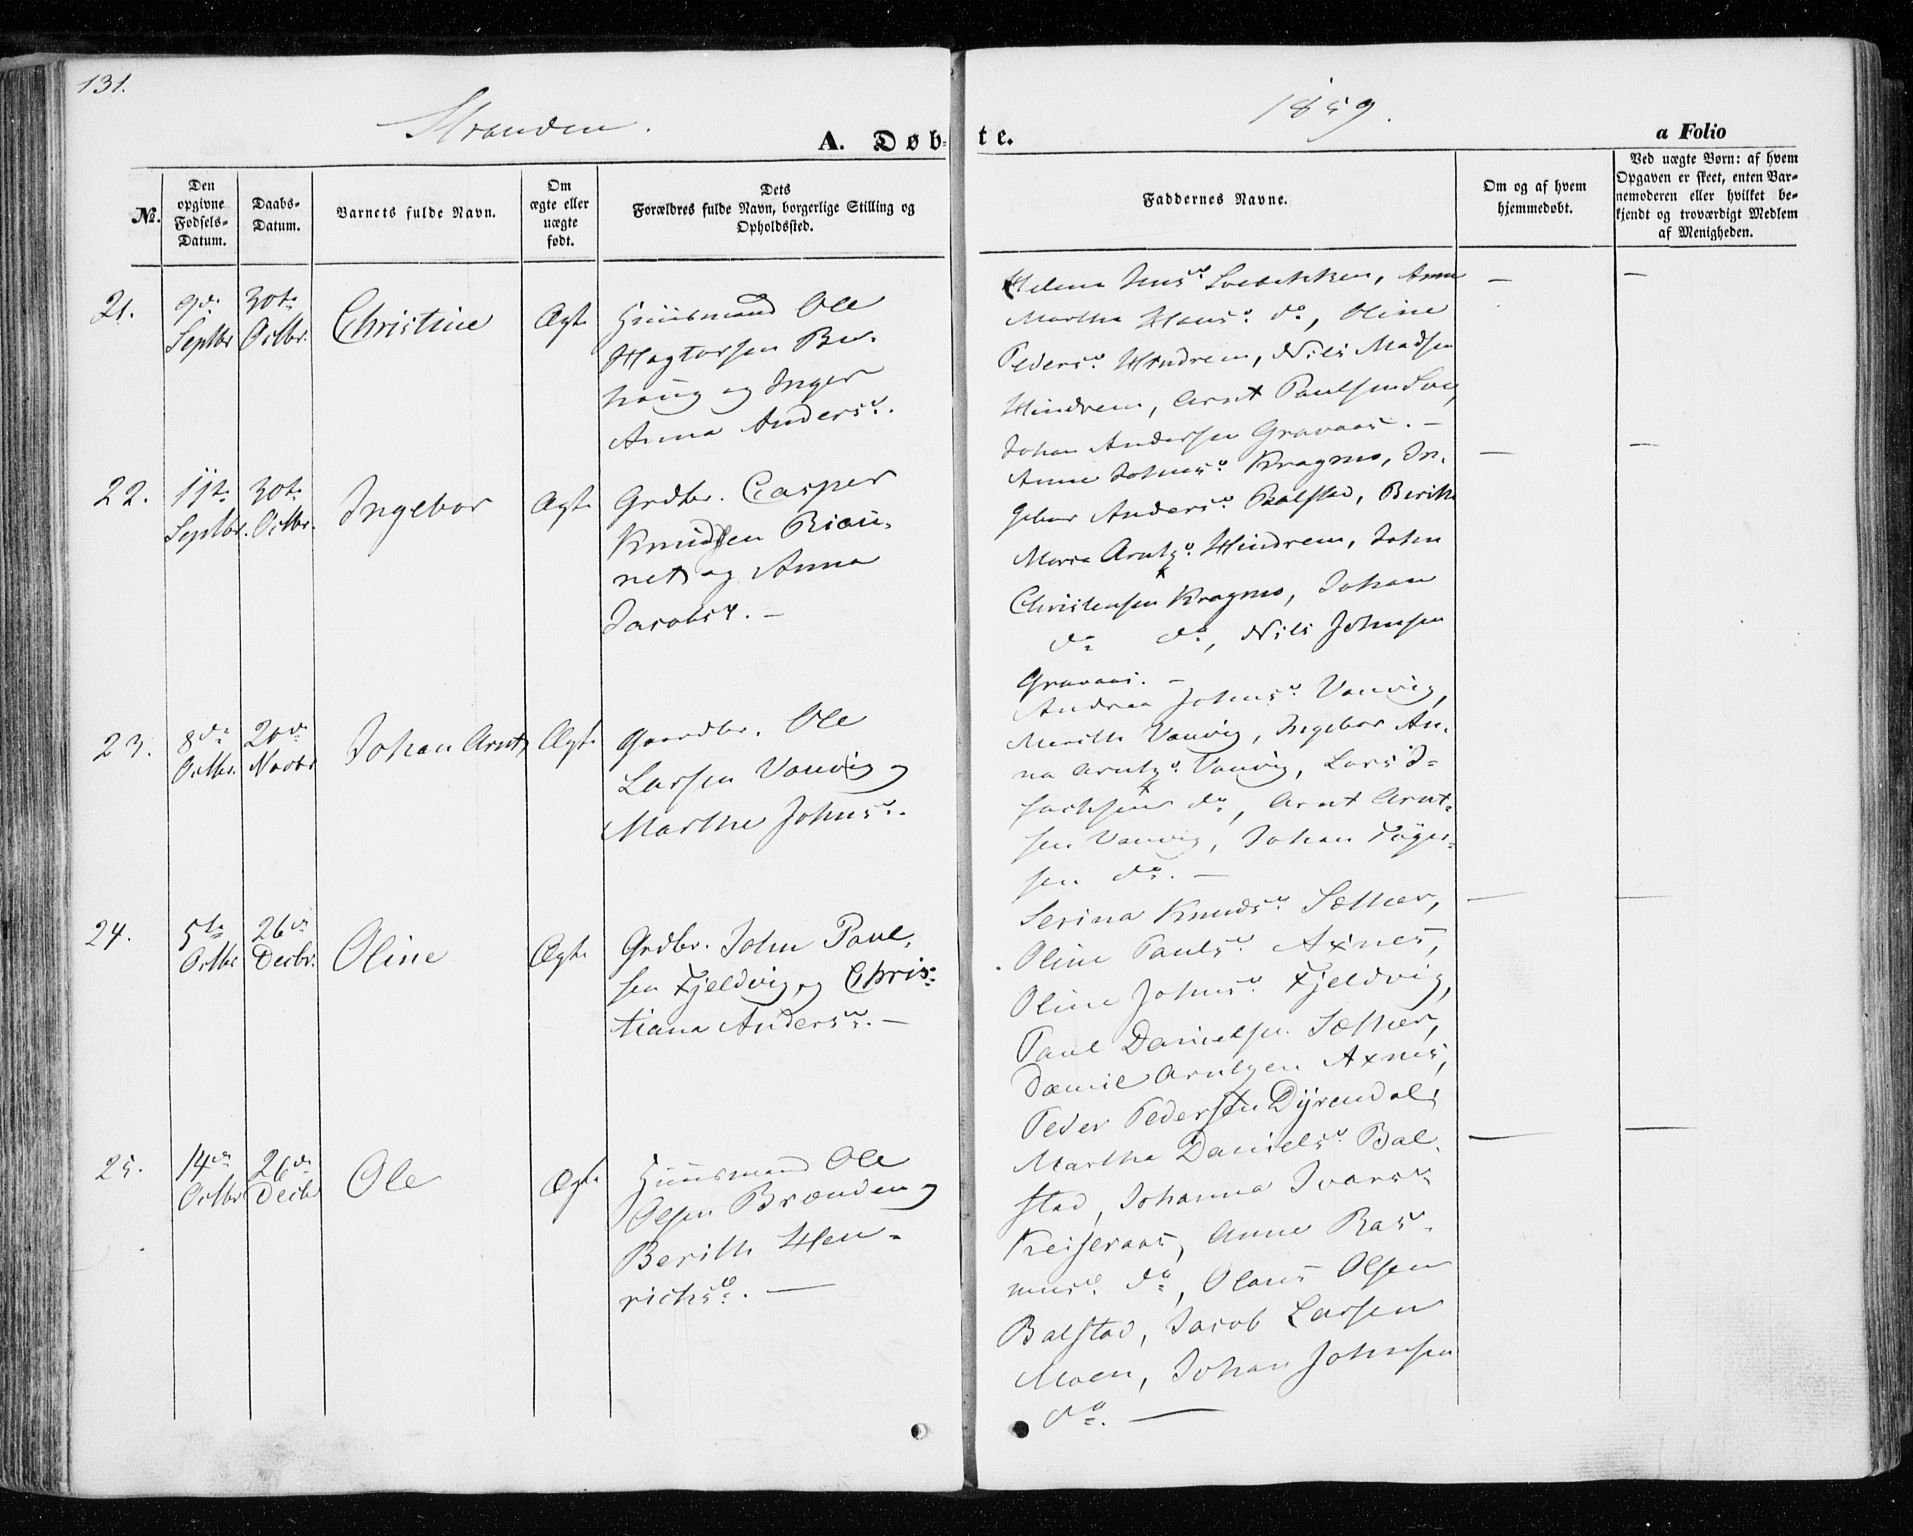 131.
Stranden.
1859.
A. Døb-
te.
a Folio
No.
Den opgivne Fødsels-Datum.
Daabs-Datum.
Barnets fulde Navn.
Om ægte eller uægte født.
Dets Forældres fulde Navn, borgerlige Stilling og Opholdssted.
Faddernes Navne.
Om og af hvem hjemmedøbt.
Ved uægte Børn: af hvem Opgaven er skeet, enten Barnemoderen eller hvilket bekjendt og troværdigt Medlem af Menigheden.
21.
9de Septbr
30te Octbr.
Christine
Ægte
Huusmand Ole
Hagtorsen
haug og Inger
Anna Andersd.
Helena
Martha Hansd. do, Oline
Pedersd. Hindrem, Nils Madsen
Hindrem, Arnt Paulsen
Johan Andersen Gravaas. -
-
-
22.
11te Septbr.
30te Octbr.
Ingebor
Ægte
Grdbr. Casper
Knudsen Riau-
net og Anna
Jacobsd. -
Anne Johnsd. Kragmo, In-
gebor Andersd. Balstad, Berith
Maria Arntzd. Hindrem, John
Christensen Kragmo, Johan
do do, Nils Johnsen
Gravaas. -
-
-
23.
8de Octbr.
20de Novbr
Johan Arnt
Ægte
Gaardbr. Ole
Larsen Vanvig og
Marthe Johnsd.
Andrea Johnsd. Vanvig,
Merith Vanvig, Ingebor An-
na Arntzd. Vanvig, Lars I-
sachsen do, Arnt Arnt-
sen Vanvig, Johan Töger-
sen do. -
24.
5te Octbr
26de Decbr.
Oline
Ægte
Grdbr. John Paul-
sen Fjeldvig, og Chris-
tiana Andersd. -
Serina Knudsd. Sæther,
Oline Paulsd. Axnes,
Oline Johnsd. Fjeldvig,
Paul Danielsen Sæther,
Daniel Arntzen Axnes,
Peder Pedersen Dyrendal,
-
-
25.
14de Octbr
26de Decbr
Ole
Ægte
Huusmand Ole
Olsen Brænden og
Berith Hen-
richsd. -
Martha Danielsd. Bal-
stad, Johanna Ivarsd.
Keiseraas, Anne Ras-
musd. do, Olaus Olsen
Balstad, Jacob Larsen
Moen, Johan Johnsen
do. -
-
-